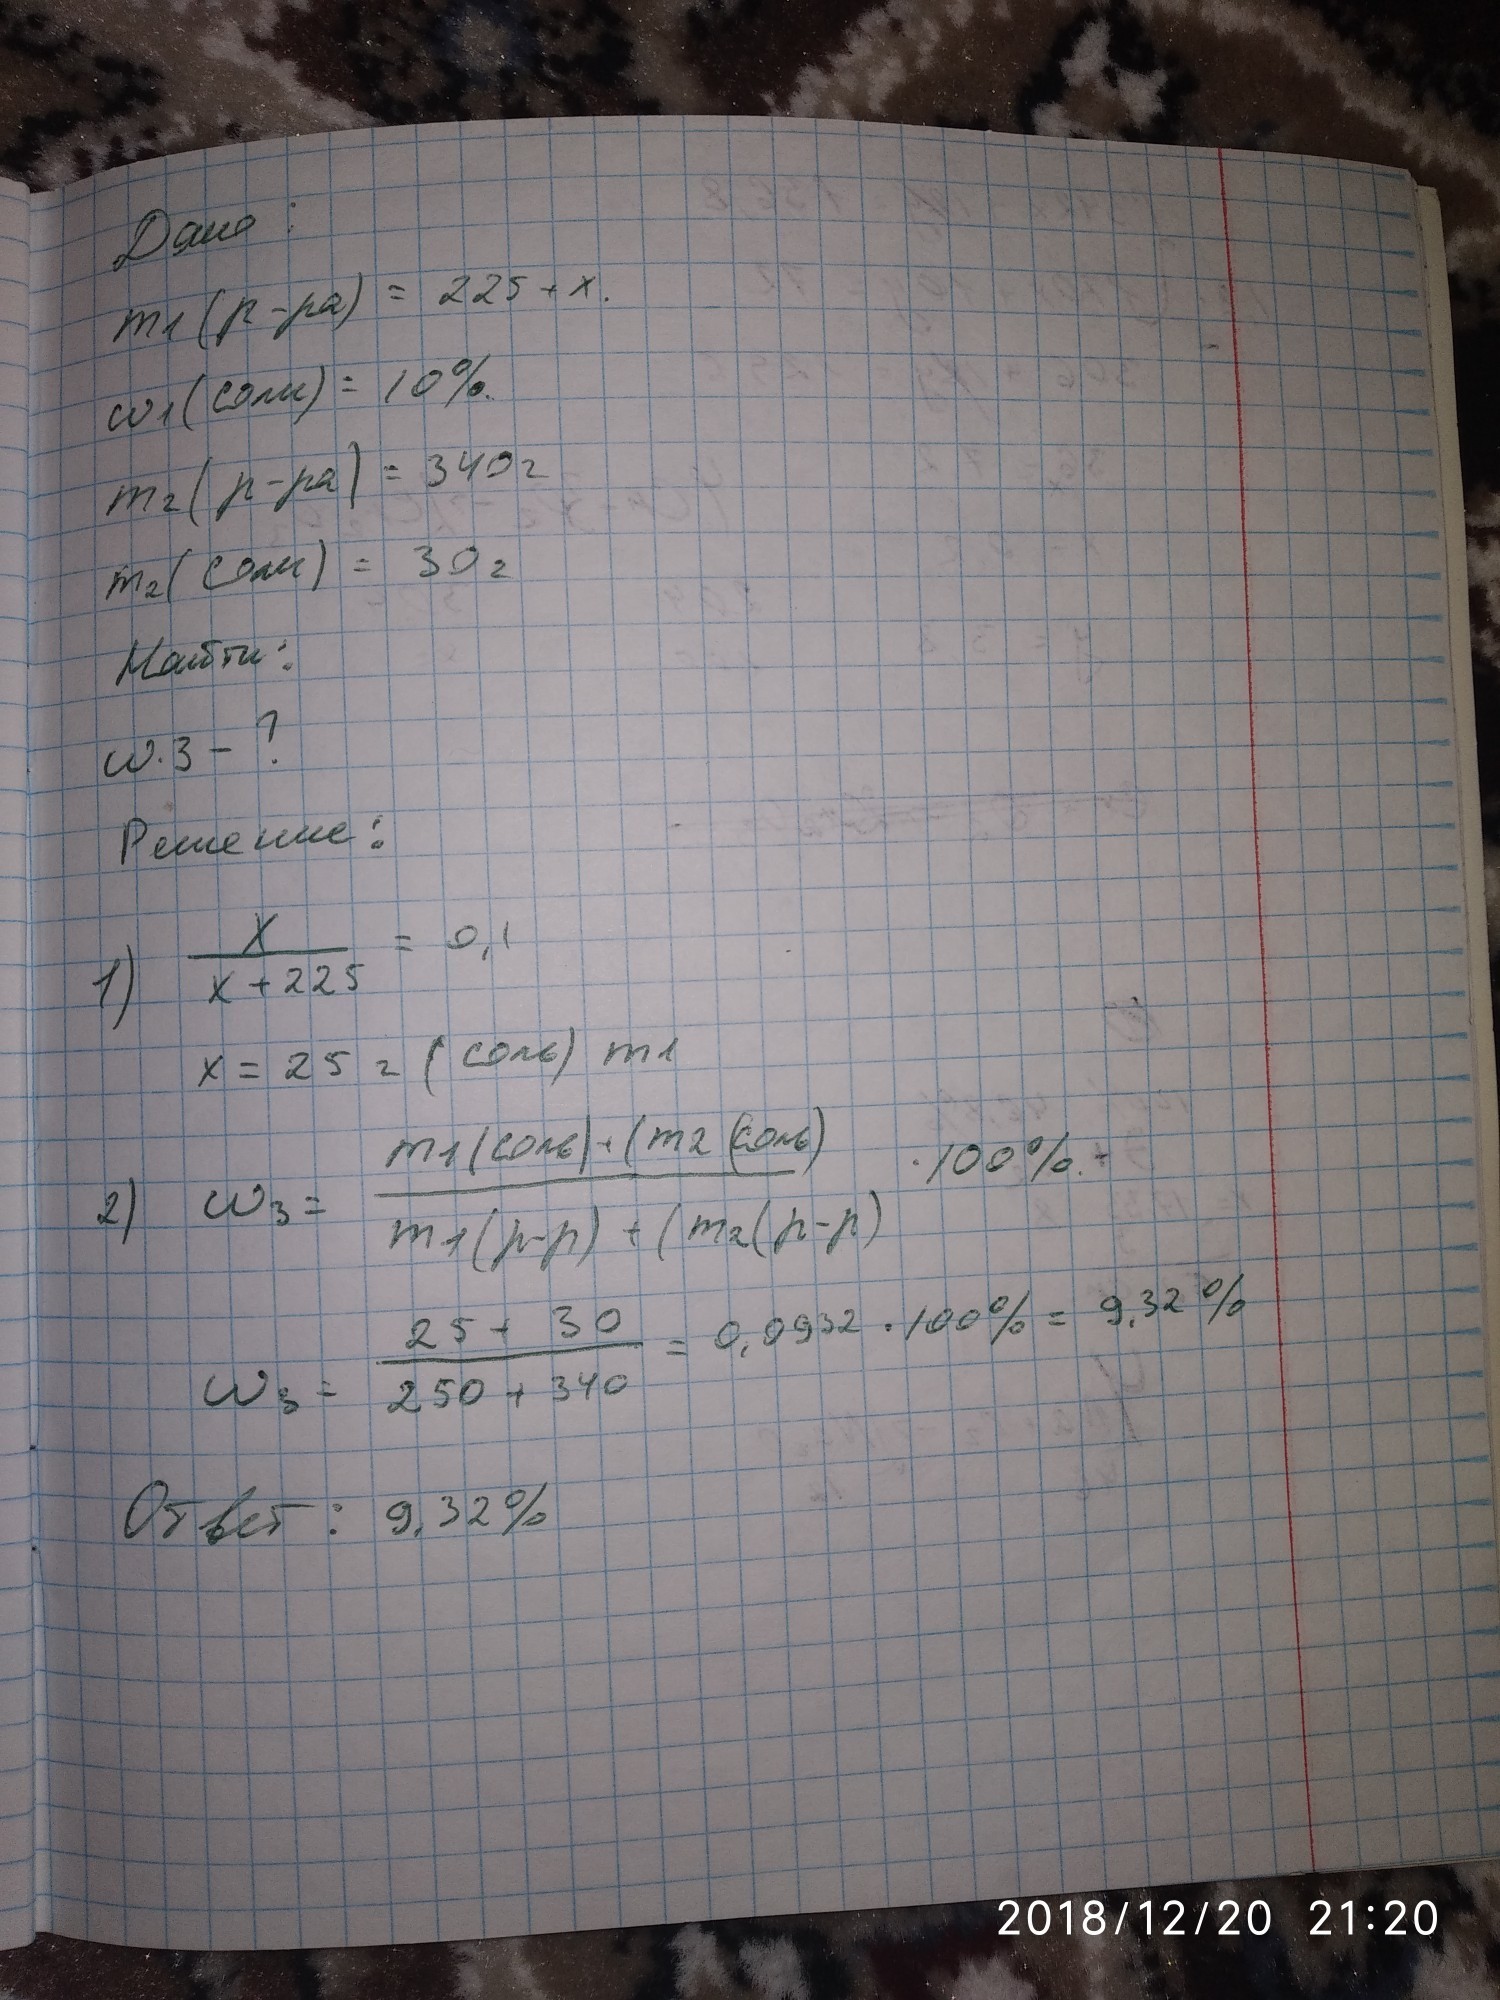 Дано:
m1(р-ра) = 225+x.
ω1(соли) = 10%.
m2(р-ра) = 340г
m2(соли) = 30г
Найти:
ω.3 - ?
Решение:
1) x / x+225 = 0,1
x = 25 г (соль) m1
2) ω3 = m1(соль)+(m2(соль) / m1(р-р)+(m2(р-р) ·100%.
ω3 = 25+30 / 250+340 = 0,0932 · 100% = 9,32%
Ответ: 9,32%
2018/12/20 21:20